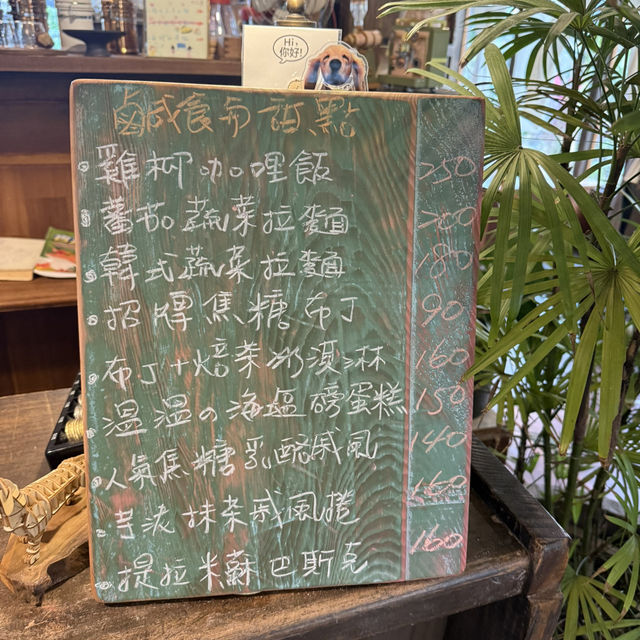 Hi,
你好!
鹹食 甜點
雞柳咖哩飯 250
蕃茄蔬菜拉麵 200
韓式蔬菜拉麵 180
招牌焦糖布丁 90
布丁+焙茶冰淇淋 160
溫溫の海塩磅蛋糕 150
人氣焦糖乳酪戚風 140
抹茶戚風捲 160
提拉米蘇巴斯克 160